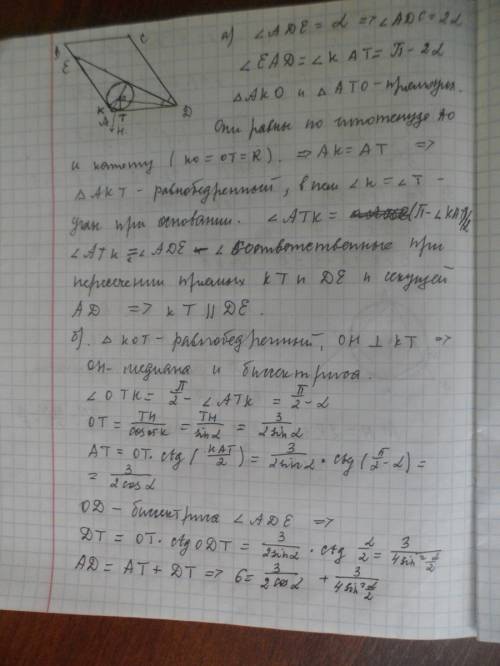 B
C
E
K
A
T
H
D
а) ∠ADE = α => ∠ADC = 2α
∠EAD = ∠KAT = π - 2α
△AKO и △ATO - прямоуг.
Они равны по гипотенузе AO
и катету (KO = OT = R). => AK = AT =>
△AKT - равнобедренный, в нем ∠K = ∠T -
углы при основании. ∠ATK = (π - ∠KAT)/2
∠ATK = ∠ADE - соответственные при
пересечении прямых KT и DE и секущей
AD => KT || DE.
б). △KOT - равнобедренный, OH ⊥ KT =>
OH - медиана и биссектриса.
∠OTK = π/2 - ∠ATK = π/2 - α
OT = TH/cosOTK = TH/sinα = 3/2sinα
AT = OT · ctg(KAT/2) = 3/2sinα · ctg(π/2 - α) =
= 3/2cosα
OD - биссектриса ∠ADE =>
DT = OT · ctgODT = 3/2sinα · ctg α/2 = 3/4sin²α/2
AD = AT + DT => 6 = 3/2cosα + 3/4sin²α/2